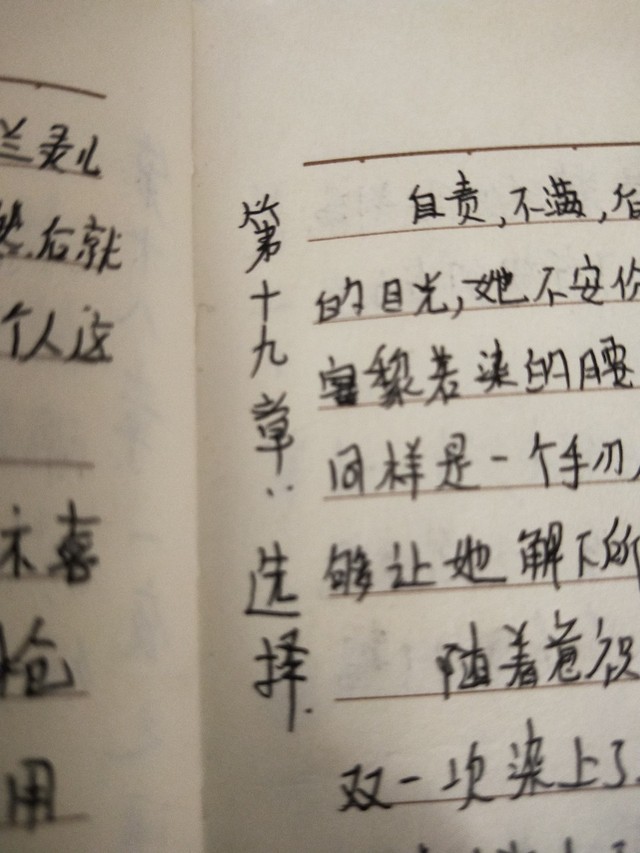 兰灵儿
然后就
个人这
不喜
枪
用
第十九章：选择.
自责,不满,
的目光,她不安
黎若染的腰
同样是一个手刃
够让她解下所
随着意识
双一次染上了